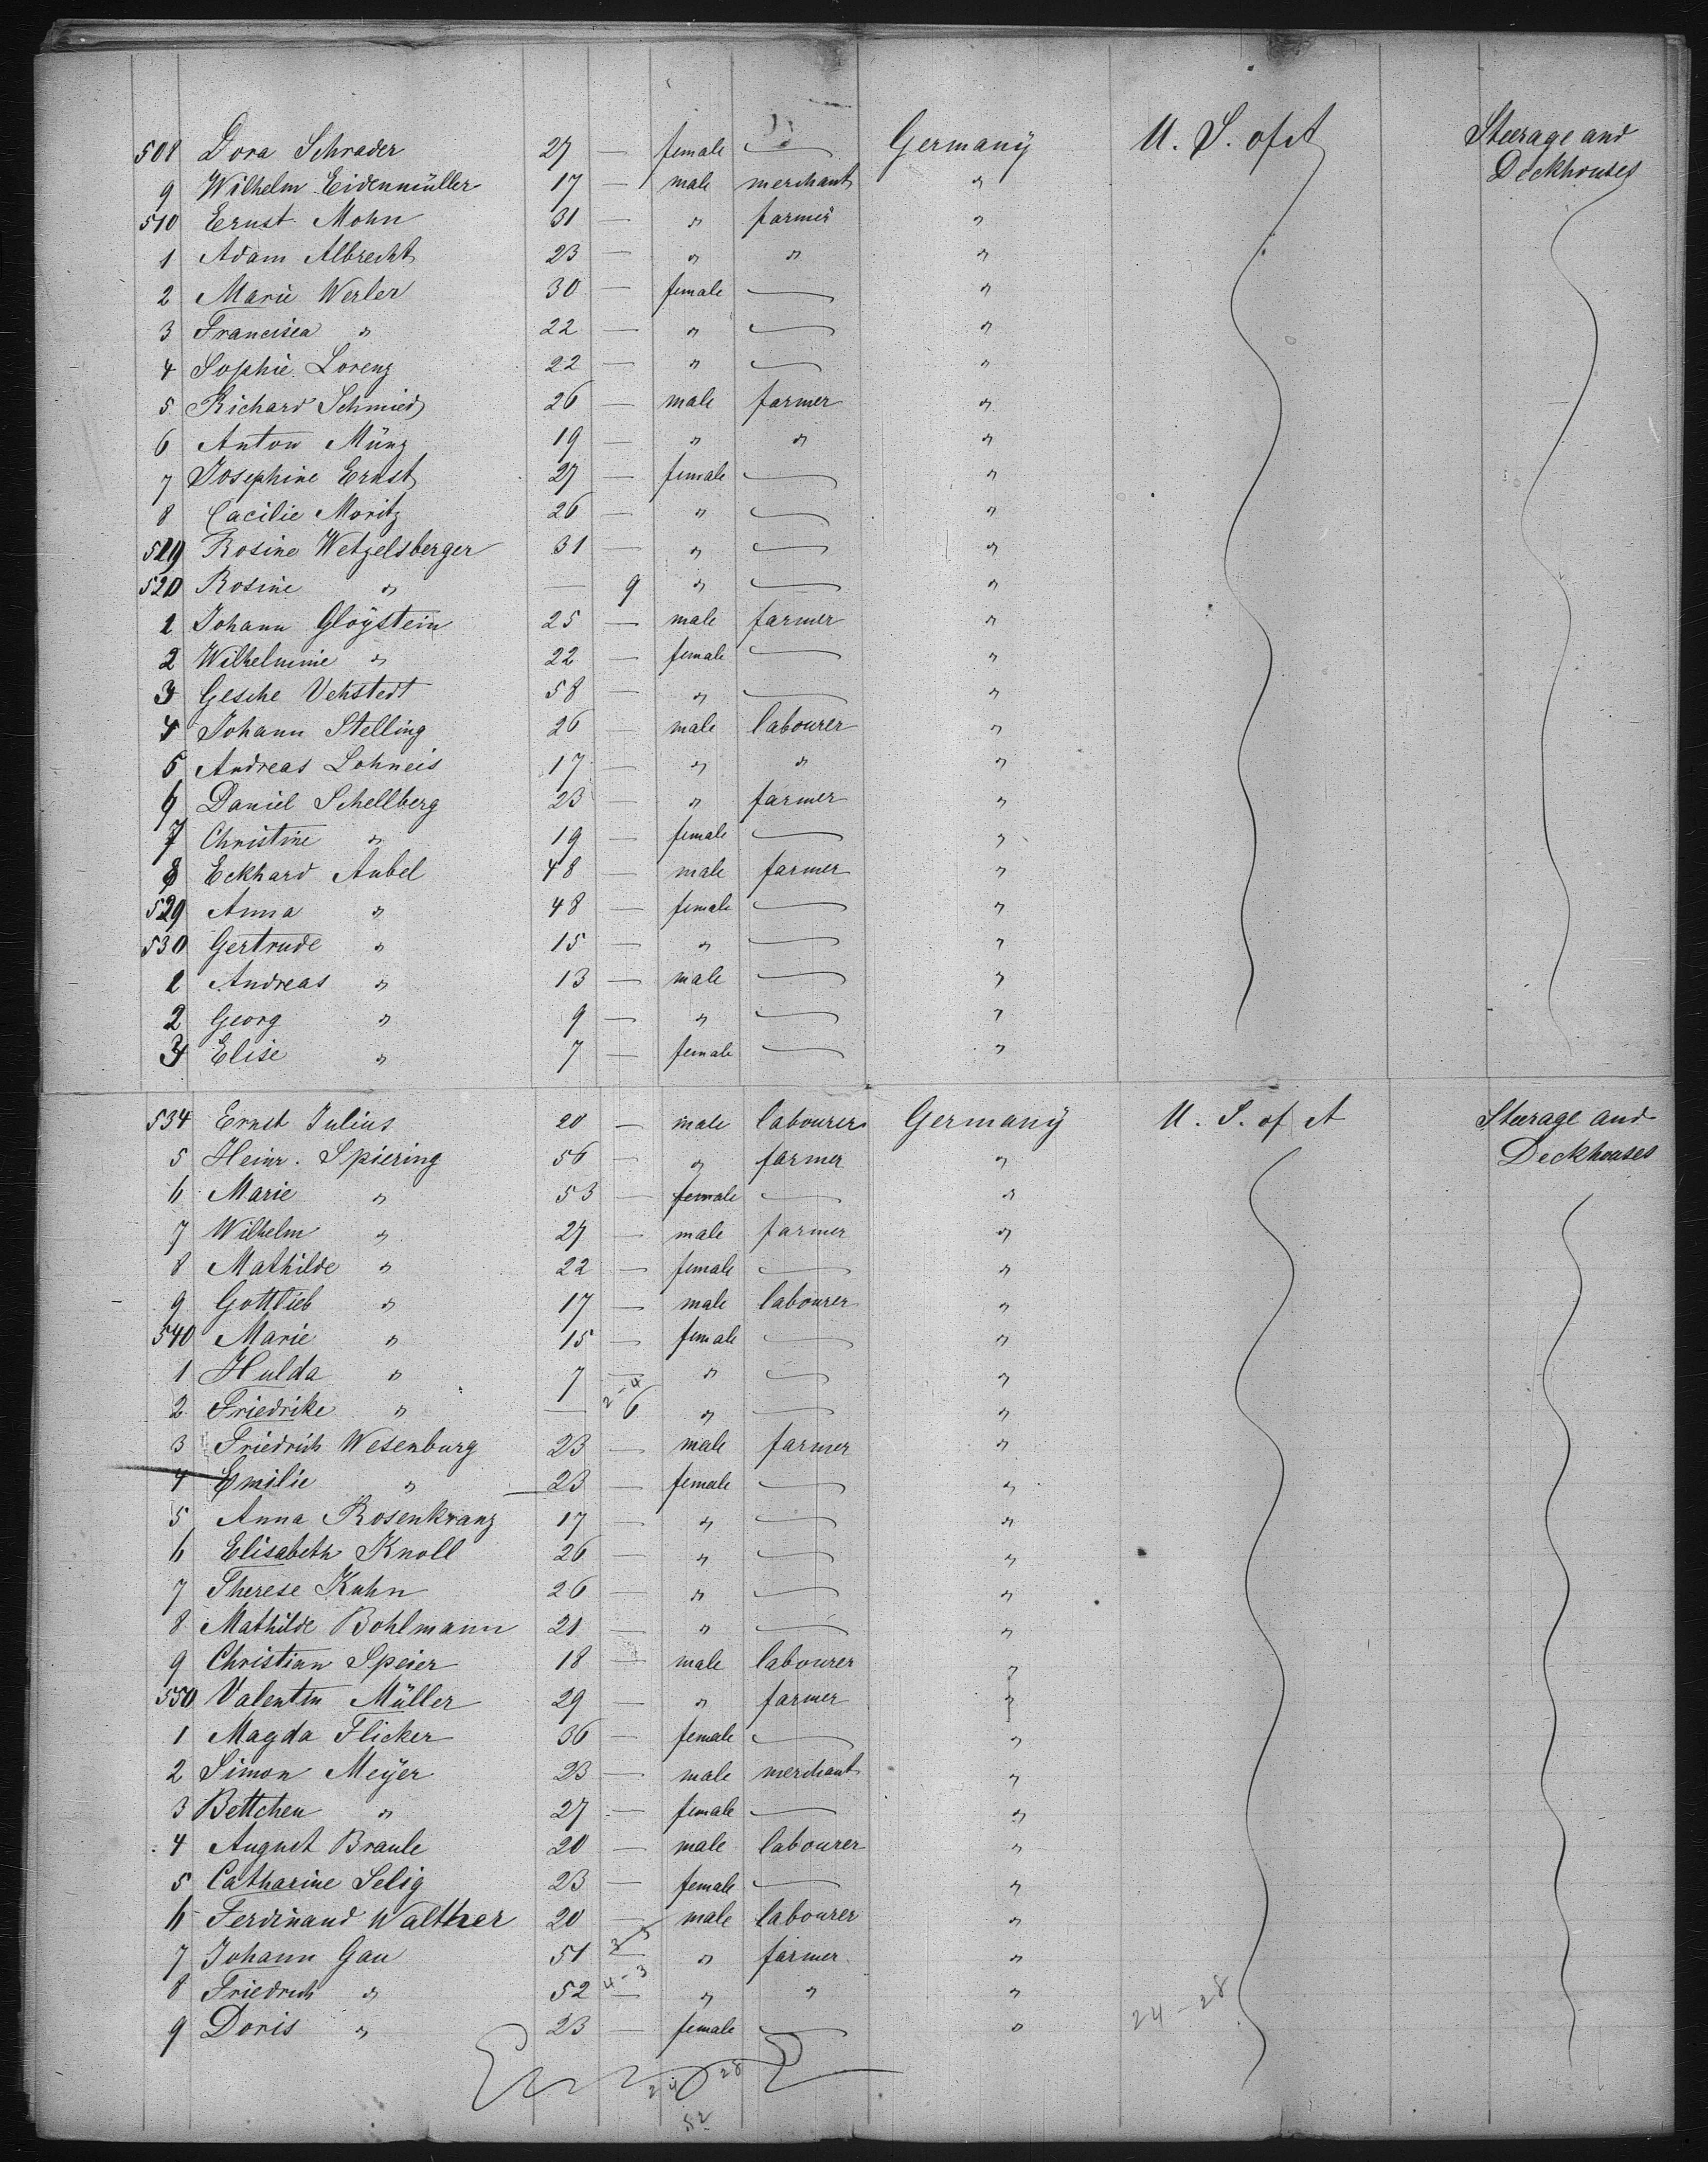 508 Dora Schrader 27 — female — Germany U. S. of A Steerage and
9 Wilhelm Eidenmüller 17 — male merchant " Deckhouses
510 Ernst Mohn 31 — " farmer "
1 Adam Albrecht 23 — " " "
2 Marie Werler 30 — female — "
3 Francisca " 22 — " — "
4 Sophie Lorenz 22 — " — "
5 Richard Schmied 26 — male farmer "
6 Anton Münz 19 — " " "
7 Josephine Ernst 27 — female — "
8 Cacilie Moritz 26 — " — "
519 Rosine Wetzelsberger 31 — " — "
520 Rosine " — 9 " — "
1 Johann Gloÿstein 25 — male farmer "
2 Wilhelmine " 22 — female — "
3 Gesche Vehstedt 58 — " — "
4 Johann Stelling 26 — male labourer "
5 Andreas Lohneis 17 — " " "
6 Daniel Schellberg 23 — " farmer "
7 Christine " 19 — female — "
8 Eckhard Aubel 48 — male farmer "
529 Anna " 48 — female — "
530 Gertrude " 15 — " — "
1 Andreas " 13 — male — "
2 Georg " 9 — " — "
3 Elise " 7 — female — "
534 Ernst Julius 20 — male labourer Germanÿ U. S. of A Steerage and
5 Heinr. Spiering 56 — " farmer " Deckhouses
6 Marie " 53 — female — "
7 Wilhelm " 27 — male farmer "
8 Mathilde " 22 — female — "
9 Gottlieb " 17 — male labourer "
540 Marie " 15 — female — "
1 Hulda " 7 — " — "
2-4
2 Friedrike " — 6 " — "
3 Friedrich Wesenburg 23 — male farmer "
4 Emilie " 23 — female — "
5 Anna Rosenkranz 17 — " — "
6 Elisabeth Knoll 26 — " — "
7 Therese Kuhn 26 — " — "
8 Mathilde Bohlmann 21 — " — "
9 Christian Speier 18 — male labourer "
550 Valentin Müller 29 — " farmer "
1 Magda Flicker 36 — female — "
2 Simon Meÿer 23 — male merchant "
3 Bettchen " 27 — female — "
4 August Braule 20 — male labourer "
5 Catharine Selig 23 — female — "
6 Ferdinand Walther 20 — male labourer "
7 Johann Gau 51 — " farmer "
4-3
8 Friedrich " 52 — " " "
24-28
9 Doris " 23 — female — "
28
52